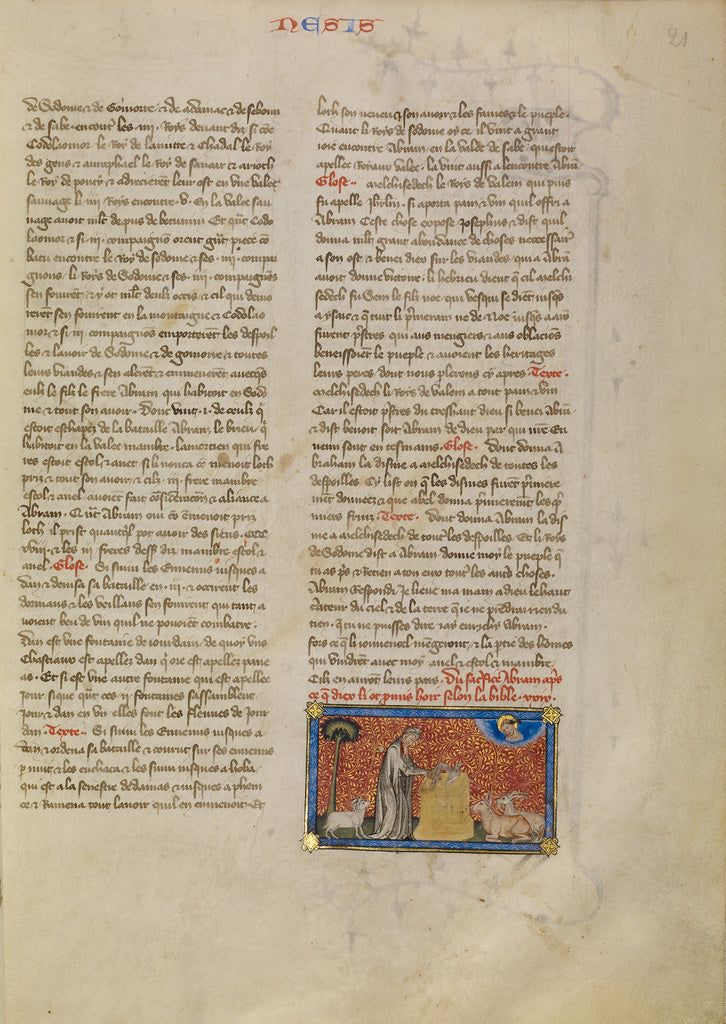 NESIS
21
de Sodome ⁊ de Gomorre ⁊ de adamac ⁊ de seboim
⁊ de sabe encont les .iiij. Roys deuant diz si cōe
Codolaomor le Roy de lamitte ⁊ Thadal le Roy
des gens ⁊ amraphael le Roy de sanaar ⁊ arioch
le Roy de ponty ⁊ adrecierēt leur ost en vne valee
sauuage li .iiij. Roys encontre .v. En la valee sau
uage auoit mlt de puis de betumin Et qn̄t Codo
laomor ⁊ si .iij. compaignōs orent
batu encontre le Roy de sodome ⁊ ses .iiij. compai
gnons. li Roys de Sodome ⁊ ses .iiij. compaignēs
sen fouirēt ⁊ y ot mlt deulz ocis ⁊ cil qui demo
rerēt sen fouirent en la montaigne ⁊ Codolao
mor ⁊ si iij compaignons emporterēt les despoil
les ⁊ lauoir de Sodome ⁊ de gomorre ⁊ toutes
leurs viandes ⁊ sen alerēt ⁊ enmenerēt auecqs
eulz le filz le frere Abram qui habitoit en Sodo
me ⁊ tout son auoir. Donc vint .i. de ceulz q̄
estoit eschapez de la bataille Abram le brieu q̄
habitoit en la valee mambre lamorrien qui fre
res estoit escol ⁊ anel. si li nonca cō menoit loth
pris ⁊ tout son auoir ⁊ cils .iij. frere mambre
escol ⁊ anel. auoiēt fait ⁊ aliance a
Abram. Et qn̄t Abram oui cō ēmenoit pris
loth il prist quantq̄l pot auoir des siens .CCC.
xviij. ⁊ les iij freres dess diz mambre escol ⁊
anel. Glose. Si suiui les Ennemis iusques a
dan ⁊ deuisa sa bataille en .iij. ⁊ occirent les
dormans ⁊ les veillans sen fouirent qui tant a
uoient beu de vin quil ne pouoiēt combatre.
Dan est vne fontaine de iourdain. de quoy vns
Chastiaus est apellez dan q̄ ore est apellez pane
as. Et si est vne autre fontaine qui est apellee
Jour si que qn̄t ces ij fontaines sassamblēt.
Jour ⁊ dan en vn elles font les fleuues de Jour
dan. Texte. Si suiui les Ennemis iusques a
dan ⁊ ordena sa bataille ⁊ courut sur ses ennemis
p nuit ⁊ les enchaca ⁊ les suiui iusques a hoba.
qui est a la senestre de damas ⁊ iusques a phem
ce ⁊ Ramena tout lauoir quil en ennenoit. Et
loth son neueu ⁊ son auoir ⁊ les fames ⁊ le pueple.
Quant li Roys de sodome oy ce il vint a grant
ioie encontre Abram en la valee de sabe qui estoit
apellee Royaux valee. la vint aussi a lencontre Abrā
Glose. melchisedech le Roys de Salem qui puis
fu apelle Jhrlm. si aporta pain ⁊ vin quil offri a
Abram Ceste chose expose Josephus ⁊ dist quil
donna mlt grant abondance de choses necessair̄
a son ost ⁊ benei dieu sur les viandes qui a Abrā
auoit donne victoire. li hebrieu dient q̄ cil melchi
sedech fu Sem le filz noe qui vesqui se diēt iusqs
a ysaac ⁊ q̄ tuit li p̄merain ne de Noe iusqs a aarō
furent p̄stres qui aus mengiers ⁊ aus oblacions
beneissoiēt le pueple ⁊ auoient les heritages
leurs peres. dont nous plerons cy apres Texte.
melchisedech li Roys de Salem a tout pain ⁊ vin
Car il estoit p̄stres du treshaut dieu si benei Abrā
⁊ dist benoit soit Abram de dieu par qui
nemi sont en tes mains. Glose. Dont donna A
braham la disme a melchisedech de toutes les
despoilles. Cy list on q̄ les dismes furēt p̄miere
mēt donnees ⁊ que abel donna p̄mieremēt les p̄
miers fruiz. Texte. Dont donna Abram la dis
me a melchisedech de toutes les despoilles. Et li Roys
de Sodome dist a Abram donne moy le pueple q̄
tu as ps ⁊ Retien a ton eux toutes les autes choses.
Abram Respondi Je lieue ma main a dieu le haut
Createur du ciel ⁊ de la terre q̄ ie ne prēdrai rien du
tien. q̄ tu ne puisses dire iay enrichy Abram.
fors ce q̄ li iouuencel mēgeront. ⁊ la ptie des homes
qui vindrēt auec moy anel ⁊ escol ⁊ mambre.
Cilz en auront leurs pars. Du sacrifice Abram aps
ce q̄ diex li ot pmis hoir selon la bible. xxiv.